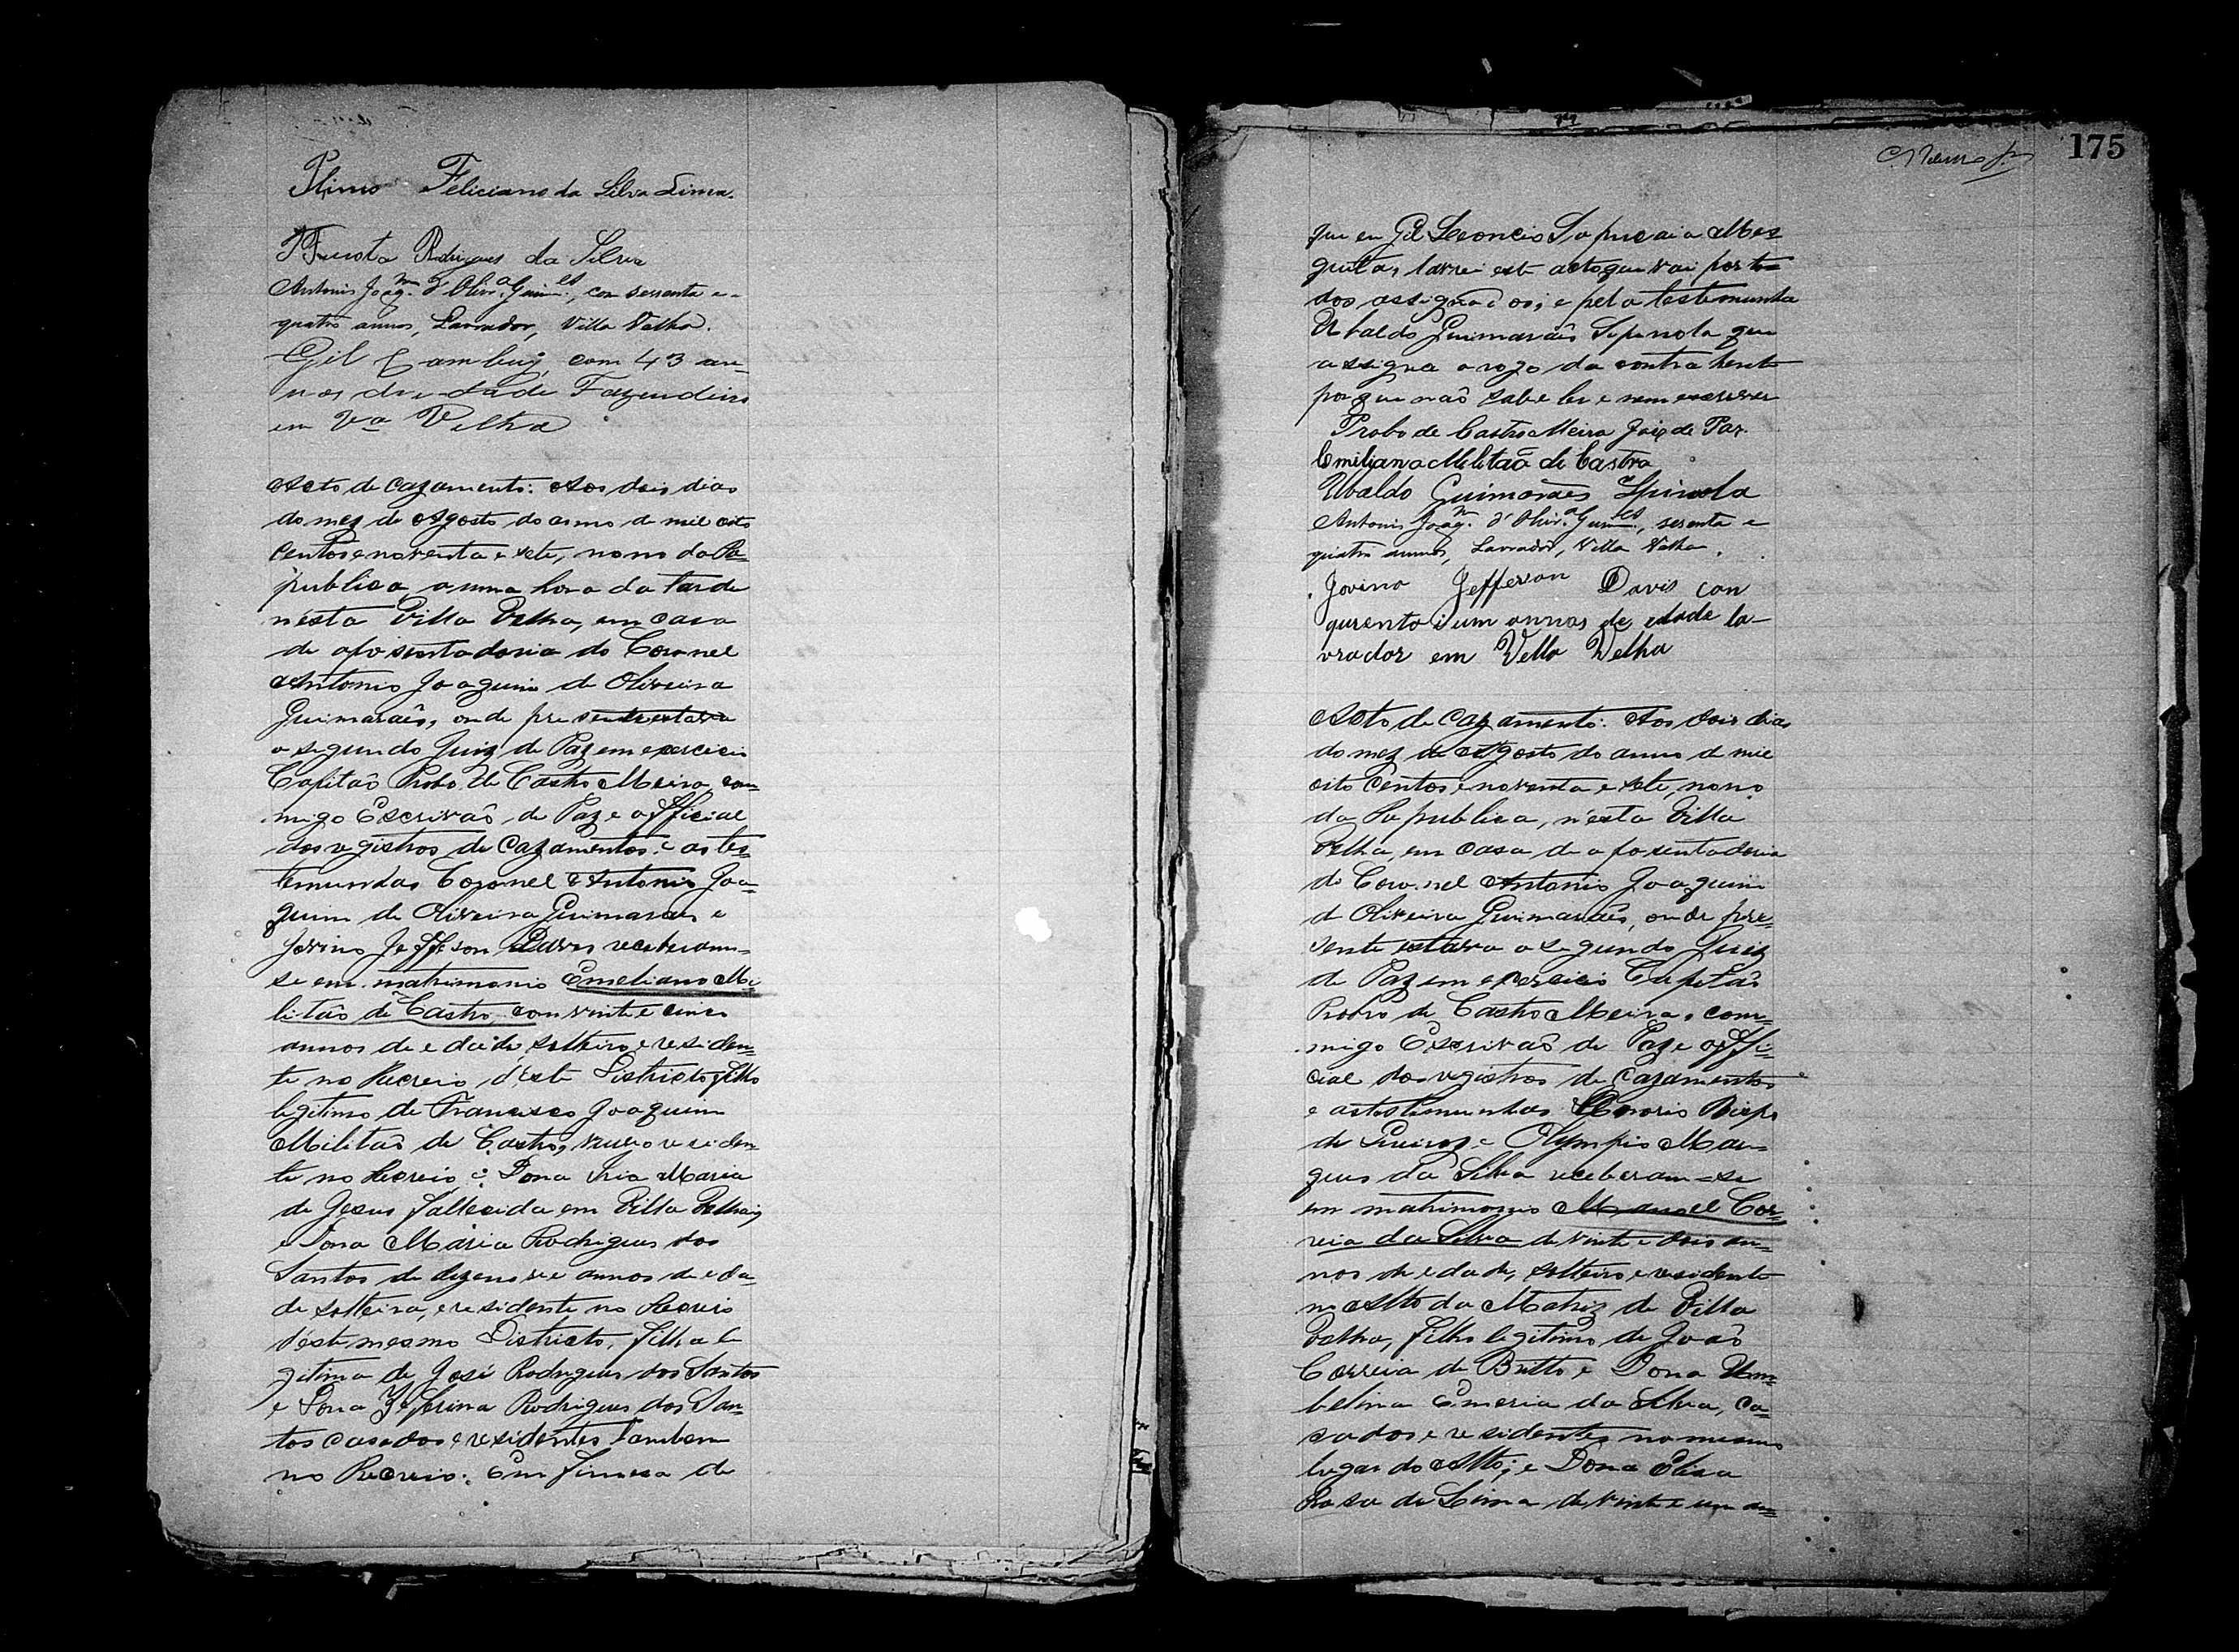 Plinio Feliciano da Silva Lima.
Rodrigues da Silva
Antonio Joaqm. d'Olivra. Guimes., com sessenta e
quatro annos, Lavrador, Villa Velha.
Gil Cambuy, com 43 an-
nos de edade Fazendeiro
em Va Velha
Acto de cazamento. Aos dois dias
do mez de Agosto do anno de mil oito
centos e noventa e sete, nono da Re-
publica, a uma hora da tarde
nésta Villa Velha, em casa
de aposentadoria do Coronel
Antonio Joaquim de Oliveira
Guimarães, onde presente estava
o segundo Juiz de Paz em exercicio
Capitaõ Probo de Castro Meira, com-
migo Escrivaõ de Paz e official
dos registros de Cazamentos e as tes-
temunhas Coronel Antonio Joa-
quim de Oliveira Guimarães e
Jovino Jefferson Davis receberam-
se em matrimonio Emeliano Mi-
litaõ de Castro, com vinte e cinco
annos de edade, solteiro e residen-
te no Recreio d'éste Districto, filho
legitimo de Francisco Joaquim
Militaõ de Castro, viuvo residen-
te no Recreio, e Dona Iria Maria
de Jesus fallecida em Villa Velha;
e Dona Maria Rodrigues dos
Santos de dezenove annos de eda-
de solteira, e residente no Recreio
déste mesmo Districto, filha le
gitima de José Rodrigues dos Santos
e Dona Rodrigues dos San-
tos casados e residentes tambem
no Recreio. Em firmeza de
175
que eu Gil Leoncio Sapucaia Mes
quitas, lavrei este acto que vai por to-
dos assignados; e pela testemunha
Ubaldo Guimarães Spinola que
assigna a rogo da contrahente
por que naõ sabe ler e nem escrever
Probo de Castro Meira Juiz de Paz.
Emiliano Militaõ de Castro
Ubaldo Guimarães Spinola
Antonio Joaqm. d'Olivra. Guimes., sesenta e
quatro annos, Lavrador, Villa Velha.
Jovino Jefferson Davis con
qurenta i um annos de edade la-
vrador em Vella Velha
Acto de cazamento. Aos dois dias
do mez de Agosto do anno de mil
oito centos e noventa e sete, nono
da Republica, n'ésta Villa
Velha, em casa de aposentadoria
do Coronel Antonio Joaquim
de Oliveira Guimarães, onde pre-
sente estava o segundo Juiz
de Paz em exercicio Capitaõ
Probo de Castro Meira, com-
migo Escrivaõ de Paz e offi-
cial dos registros de Cazamentos
e as testemunhas Honorio Bispo
de Queiroz e Olympio Mar-
ques da Silva receberam-se
em matrimonio Manoel Cor-
reia da Silva de vinte e dois an-
nos de edade, solteiro e residente
no Alto da Matriz de Villa
Velha, filho legitimo de Joaõ
Correia de Britto e Dona Um-
belina Emeria da Silva, ca-
sados e residentes no mesmo
lugar do Alto; e Dona Elisa
Rosa de Lima de vinte e um an-